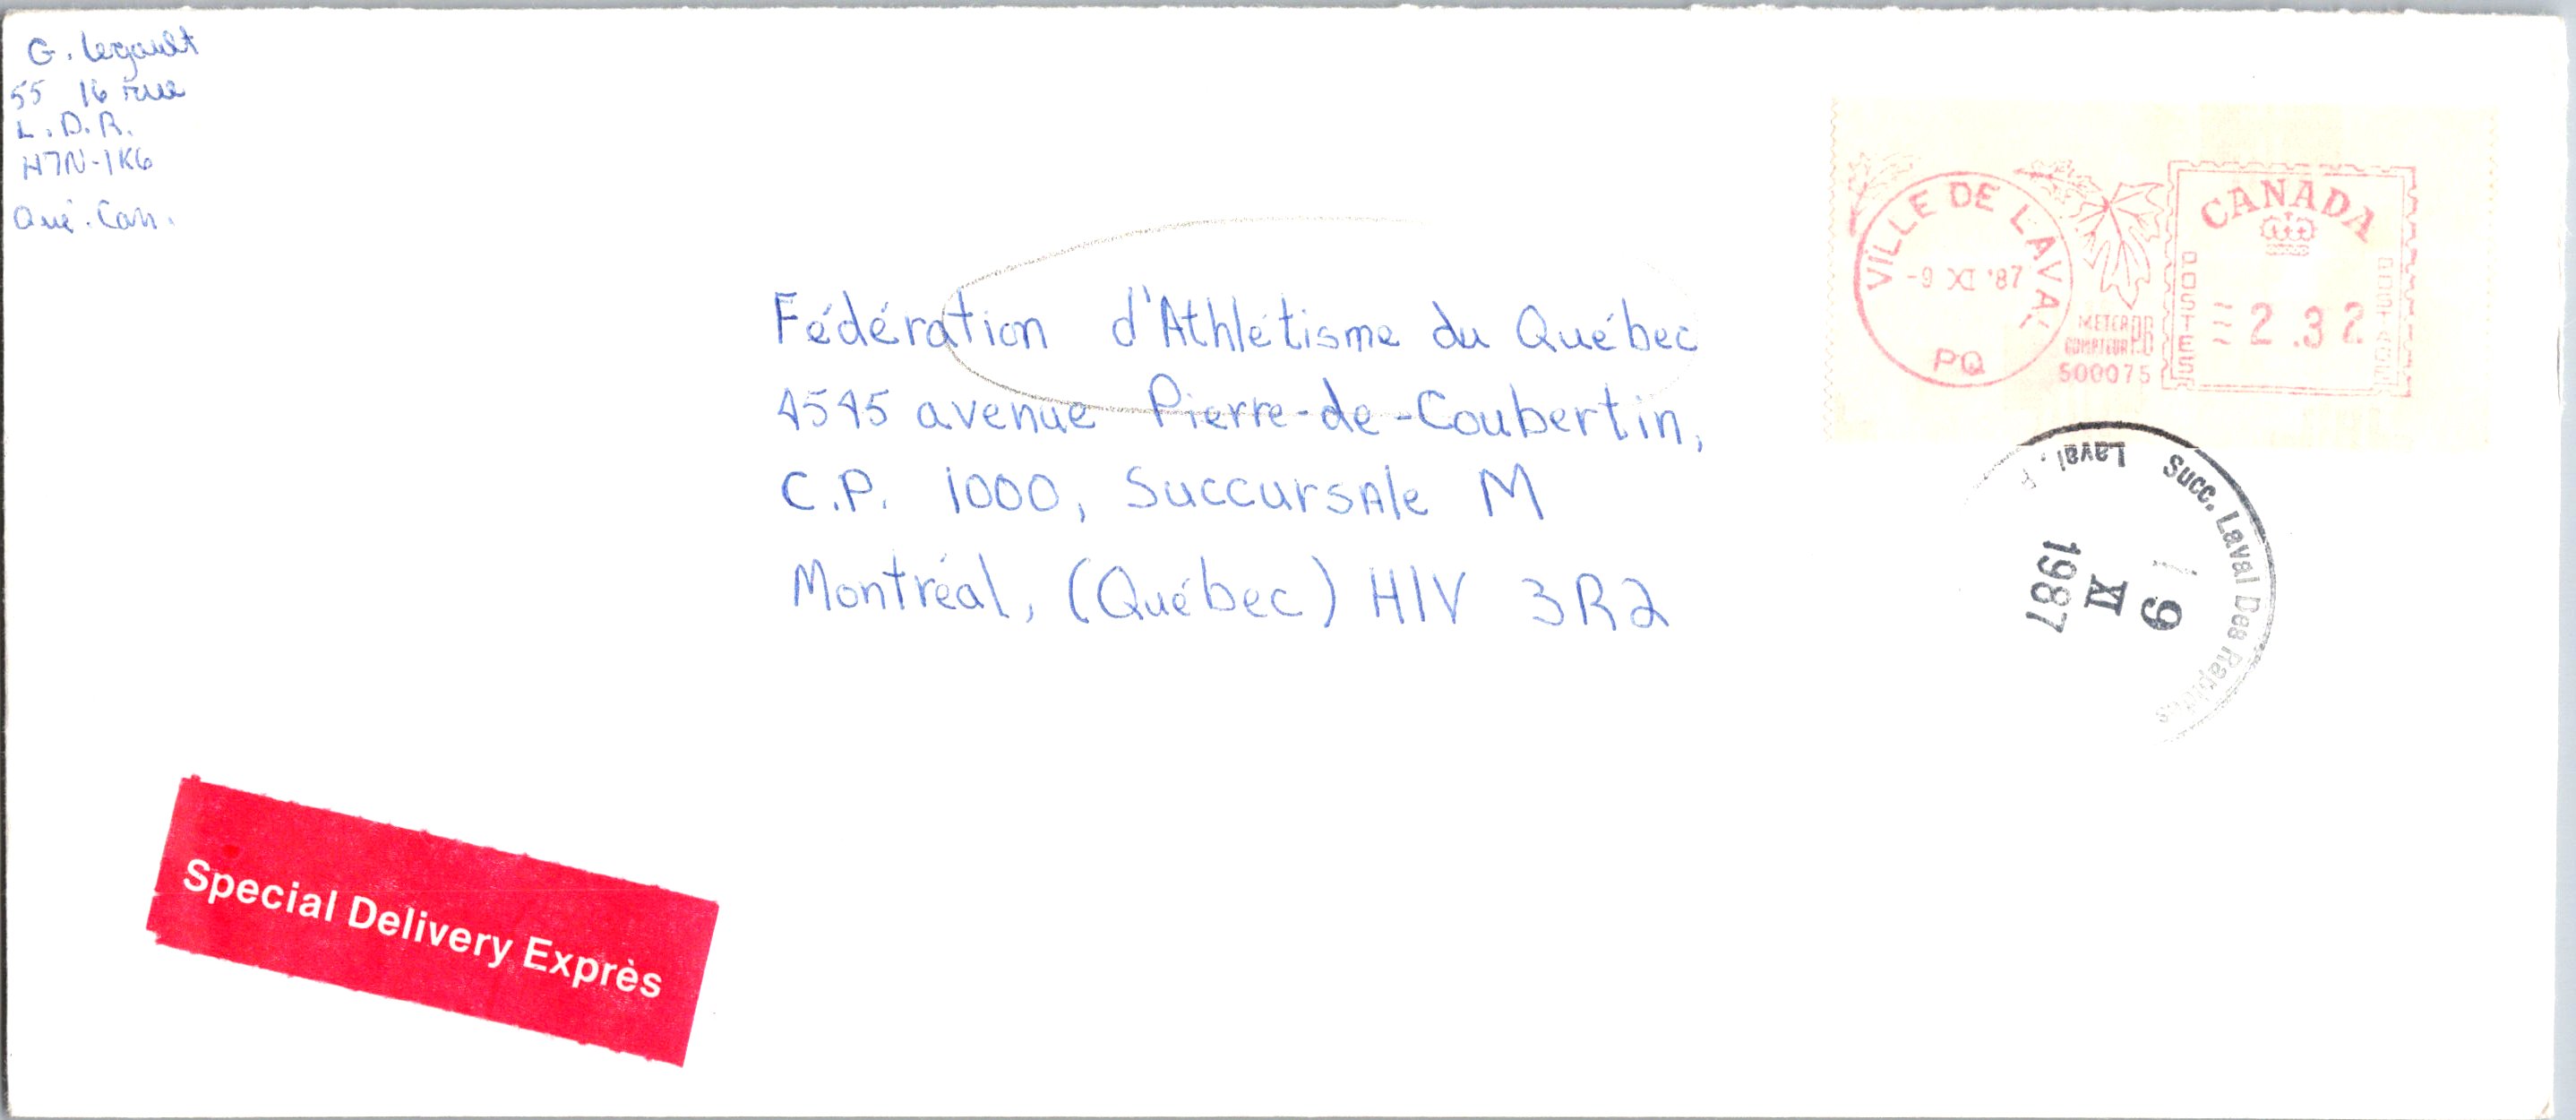 G. Legault
55 16 rue
L.D.R.
H7N-1K6
Qué. Can.
Fédération d'Athlétisme du Québec
4545 avenue Pierre-de-Coubertin,
C.P. 1000, Succursale M
Montréal, (Québec) H1V 3R2
VILLE DE LAVAL
-9 XI '87
PQ
METER
COMPTEUR
PB
500075
CANADA
POSTES
POSTAGE
2.32
Succ. Laval Des Rapides
Laval, P.
9
XI
1987
Special Delivery Exprès